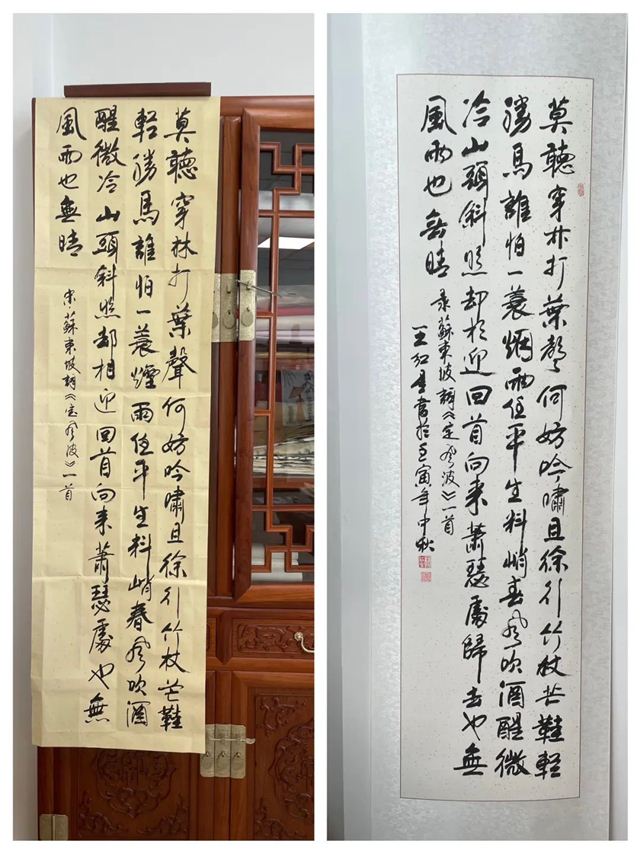 莫聽穿林打葉聲何妨吟嘯且徐行竹杖芒鞋
輕勝馬誰怕一蓑煙雨任平生料峭春風吹酒
醒微冷山頭斜照却相迎回首向來蕭瑟處也無
風雨也無晴
宋蘇東坡詞《定風波》一首
莫聽穿林打葉聲何妨吟嘯且徐行竹杖芒鞋輕
勝馬誰怕一蓑烟雨任平生料峭春風吹酒醒微
冷山頭斜照却相迎回首向來蕭瑟處歸去也無
風雨也無晴
录蘇東坡詞《定風波》一首
王紅書於壬寅年中秋